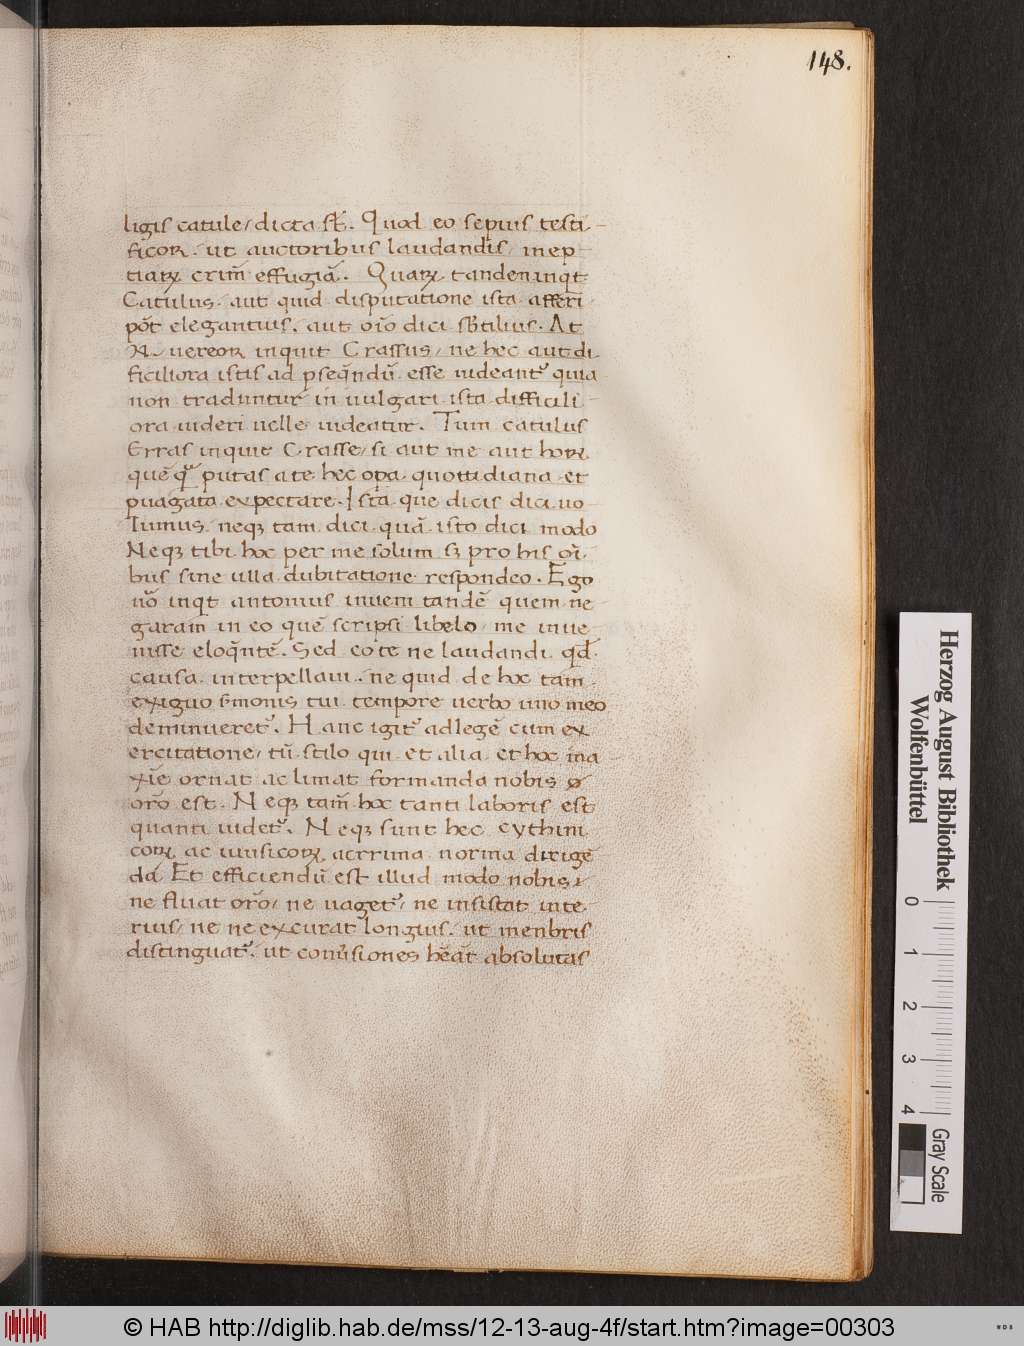 148.
ligis catule/ dicta st̄. Quod eo sepius testi-
ficor. ut auctoribus laudandis/ inep-
tiaꝝ crim̄ effugiā. Quaꝝ tandem inqt
Catulus. aut quid disputatione ista afferri
pōt elegantius. aut oīo dici sb̄tilius. At
N̄. uereor inquit Crassus/ ne hec aut di
ficiliora istis ad pseq̄ndū esse uideantᷣ quia
non traduntur in uulgari ista difficili-
ora uideri uelle uideatur. Tum catulus
Erras inquit Crasse/ si aut me aut hoꝝ
quēq̄ putas a te hec opa quottidiana et
puagata expectare. Ista que dicis dici uo-
lumus neqꝫ tam dici quā isto dici modo
Neqꝫ tibi hoc per me solum sꝫ pro his oī-
bus sine ulla dubitatione respondeo. Ego
uō inqt antonius inueni tandē quem ne-
garam in eo quē scripsi libelo/ me inue-
nisse eloq̄ntē. Sed eo te ne laudandi qd̄
causa interpellaui. ne quid de hoc tam
exiguo s̄monis tui tempore uerbo uno meo
deminueretᷣ. Hanc igitᷣ ad legē cum ex
ercitatione/ tū stilo qui et alia et hoc ma
xīe ornat ac limat formanda nobis
orō est. Neqꝫ tam̄ hoc tanti laboris est
quanti uidetᷣ. Neqꝫ sunt hec rythmi
coꝝ ac musicoꝝ acrrima norma dirigē
da Et efficiendū est illud modo nobis/
ne fluat orō/ ne uagetᷣ/ ne insistat inte-
rius/ ne ne excurat longius. ut menbris
distinguatᷣ. ut conūsiones hēāt absolutas
Herzog August Bibliothek
Wolfenbüttel
0
1
2
3
4
Gray Scale
© HAB http://diglib.hab.de/mss/12-13-aug-4f/start.htm?image=00303